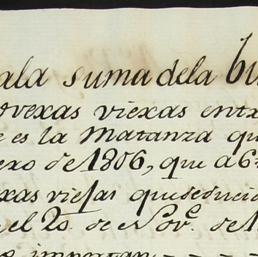 ala suma dela bu
ovexas viexas entx
e es la Matanza qu
exo de 1806, que a 6
xas viejas quesedució
el 20. de Nov.e de 1
importan